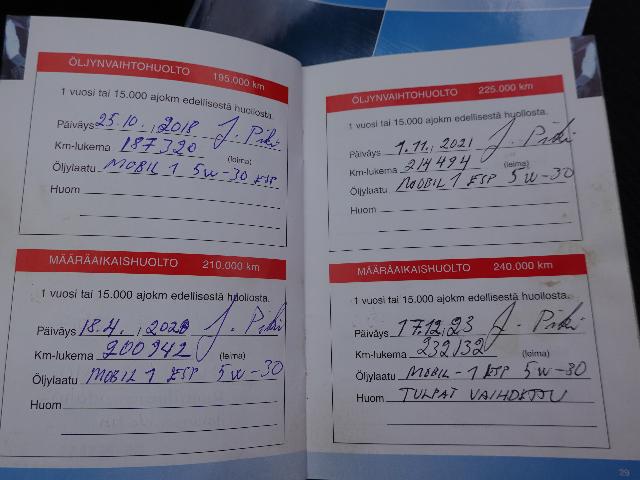 ÖLJYNVAIHTOHUOLTO 195.000 km
1 vuosi tai 15.000 ajokm edellisestä huollosta.
Päiväys 25.10.2018 J. Piki
Km-lukema 187320 (leima)
Öljylaatu MOBIL 1 5W-30 ESP
Huom
MÄÄRÄAIKAISHUOLTO 210.000 km
1 vuosi tai 15.000 ajokm edellisestä huollosta.
Päiväys 18.4.2020 J. Piki
Km-lukema 200942 (leima)
Öljylaatu MOBIL 1 ESP 5W-30
Huom
ÖLJYNVAIHTOHUOLTO 225.000 km
1 vuosi tai 15.000 ajokm edellisestä huollosta.
Päiväys 1.11.2021 J. Piki
Km-lukema 214494 (leima)
Öljylaatu MOBIL 1 ESP 5W-30
Huom
MÄÄRÄAIKAISHUOLTO 240.000 km
1 vuosi tai 15.000 ajokm edellisestä huollosta.
Päiväys 17.12.23 J. Piki
Km-lukema 232132 (leima)
Öljylaatu MOBIL-1 ESP 5W-30
Huom TULPAT VAIHDETTU
29